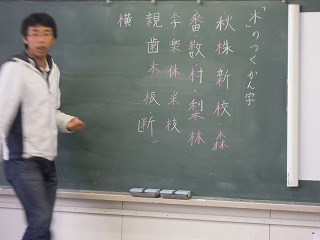 「木」のつくかん字
秋株新校森
番数村梨林
李楽休米枝
親歯木板断
横